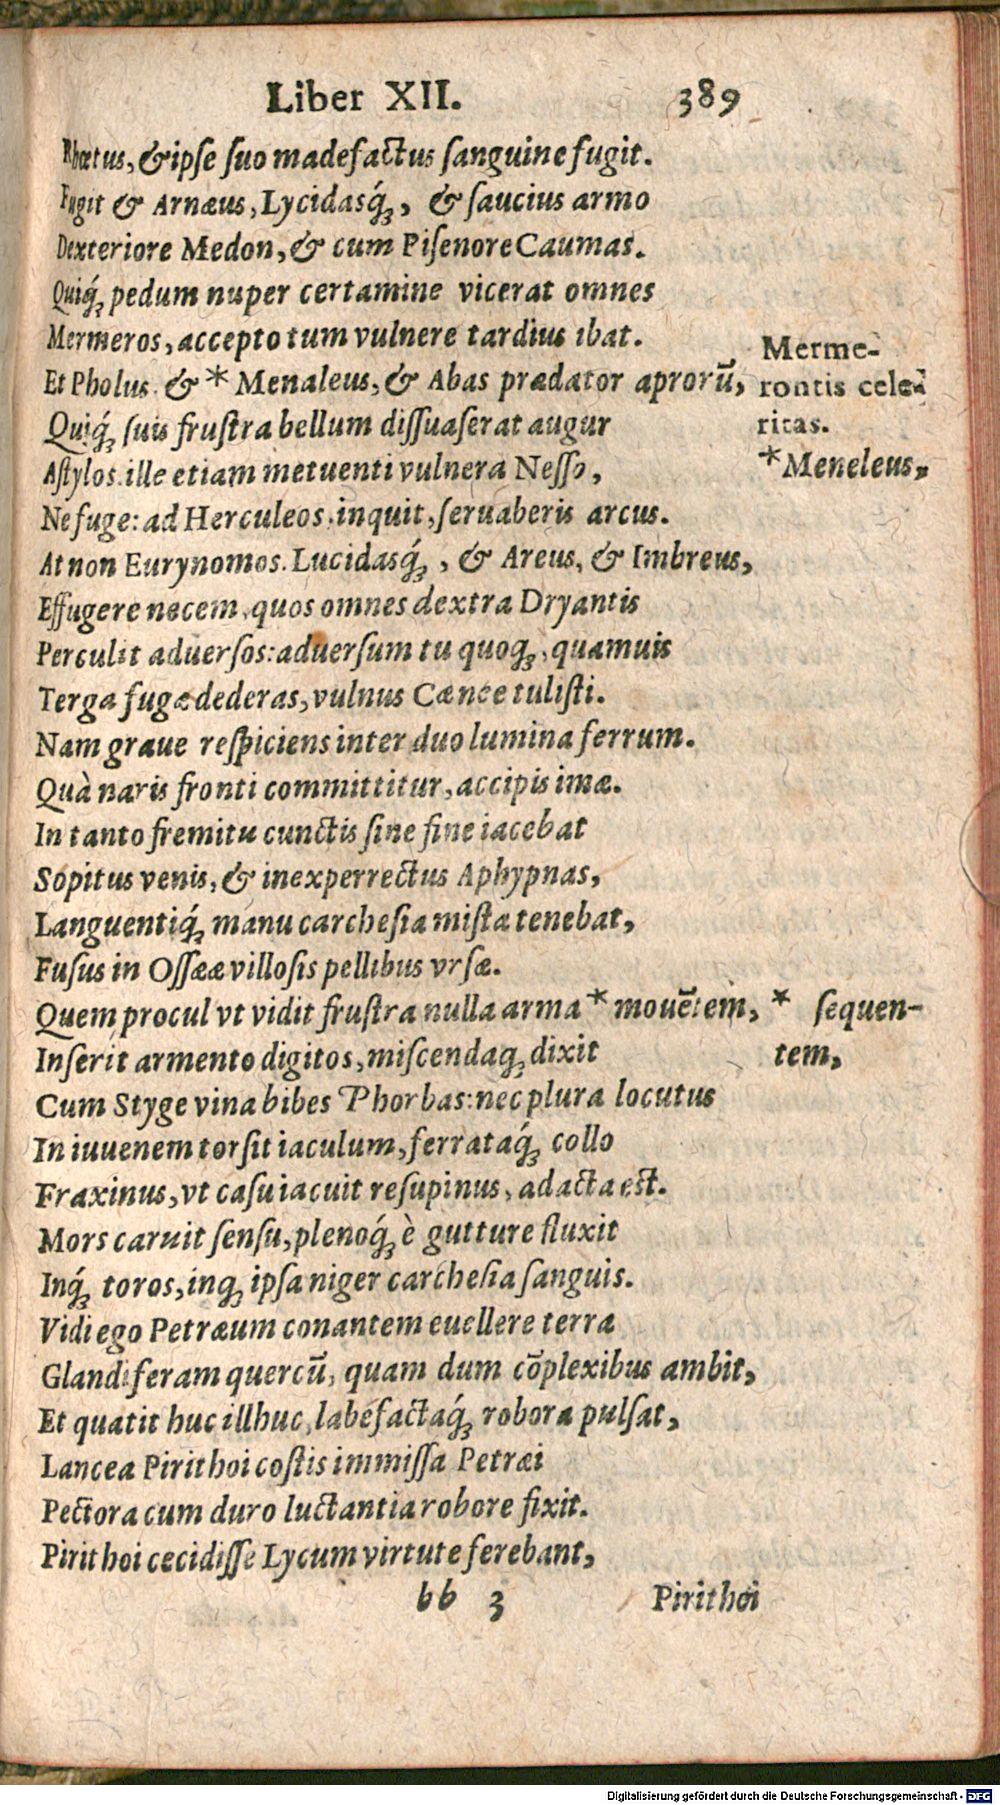 Liber XII. 389
Rhœtus, & ipſe ſuo madefactus ſanguine fugit.
Fugit & Arnæus, Lycidasq́;, & ſaucius armo
Dexteriore Medon, & cum Piſenore Caumas.
Quiq́; pedum nuper certamine vicerat omnes
Mermeros, accepto tum vulnere tardius ibat.
Et Pholus. & * Menaleus, & Abas prædator aprorū,
Quiq́; ſuis fruſtra bellum diſſuaſerat augur
Aſtylos. ille etiam metuenti vulnera Neſſo,
Ne fuge: ad Herculeos, inquit, ſeruaberis arcus.
At non Eurynomos. Lucidasq́;, & Areus, & Imbreus,
Effugere necem, quos omnes dextra Dryantis
Perculit aduerſos: aduerſum tu quoq;, quamuis
Terga fugæ dederas, vulnus Cænee tuliſti.
Nam graue reſpiciens inter duo lumina ferrum.
Quà naris fronti committitur, accipis imæ.
In tanto fremitu cunctis ſine fine iacebat
Sopitus venis, & inexperrectus Aphypnas,
Languentiq́; manu carcheſia miſta tenebat,
Fuſus in Oſſææ villoſis pellibus vrſæ.
Quem procul vt vidit fruſtra nulla arma * mouētem,
Inſerit armento digitos, miſcendaq; dixit
Cum Styge vina bibes Phorbas: nec plura locutus
In iuuenem torſit iaculum, ferrataq́; collo
Fraxinus, vt caſu iacuit reſupinus, adacta eſt.
Mors caruit ſenſu, plenoq́; è gutture fluxit
Inq́; toros, inq; ipſa niger carcheſia ſanguis.
Vidi ego Petræum conantem euellere terra
Glandiferam quercū, quam dum cōplexibus ambit,
Et quatit huc illhuc, labefactaq́; robora pulſat,
Lancea Pirithoi coſtis immiſſa Petræi
Pectora cum duro luctantia robore fixit.
Pirithoi cecidiſſe Lycum virtute ferebant,
bb 3 Pirithoi
Merme-
rontis cele-
ritas.
* Meneleus,
* ſequen-
tem,
Digitalisierung gefördert durch die Deutsche Forschungsgemeinschaft - DFG